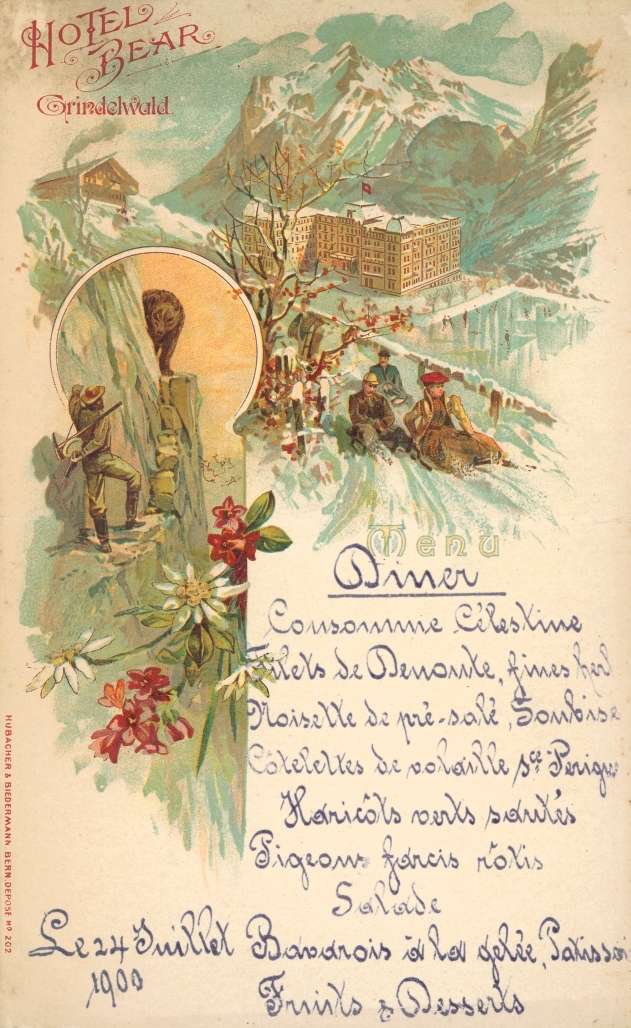 HOTEL
BEAR
Grindelwald.
Menu
Diner
Consomme Célestine
Filets de Denonte, fines herb
Noisette de pré-salé, Soubise
Côtelettes de volaille sce Perigu
Haricôts verts sautés
Pigeons farcis rôtis
Salade
Le 24 Juillet
1900
Bavarois à la gelée, Patisser
Fruits & Desserts
HUBACHER & BIEDERMANN BERN, DEPOSE No 202